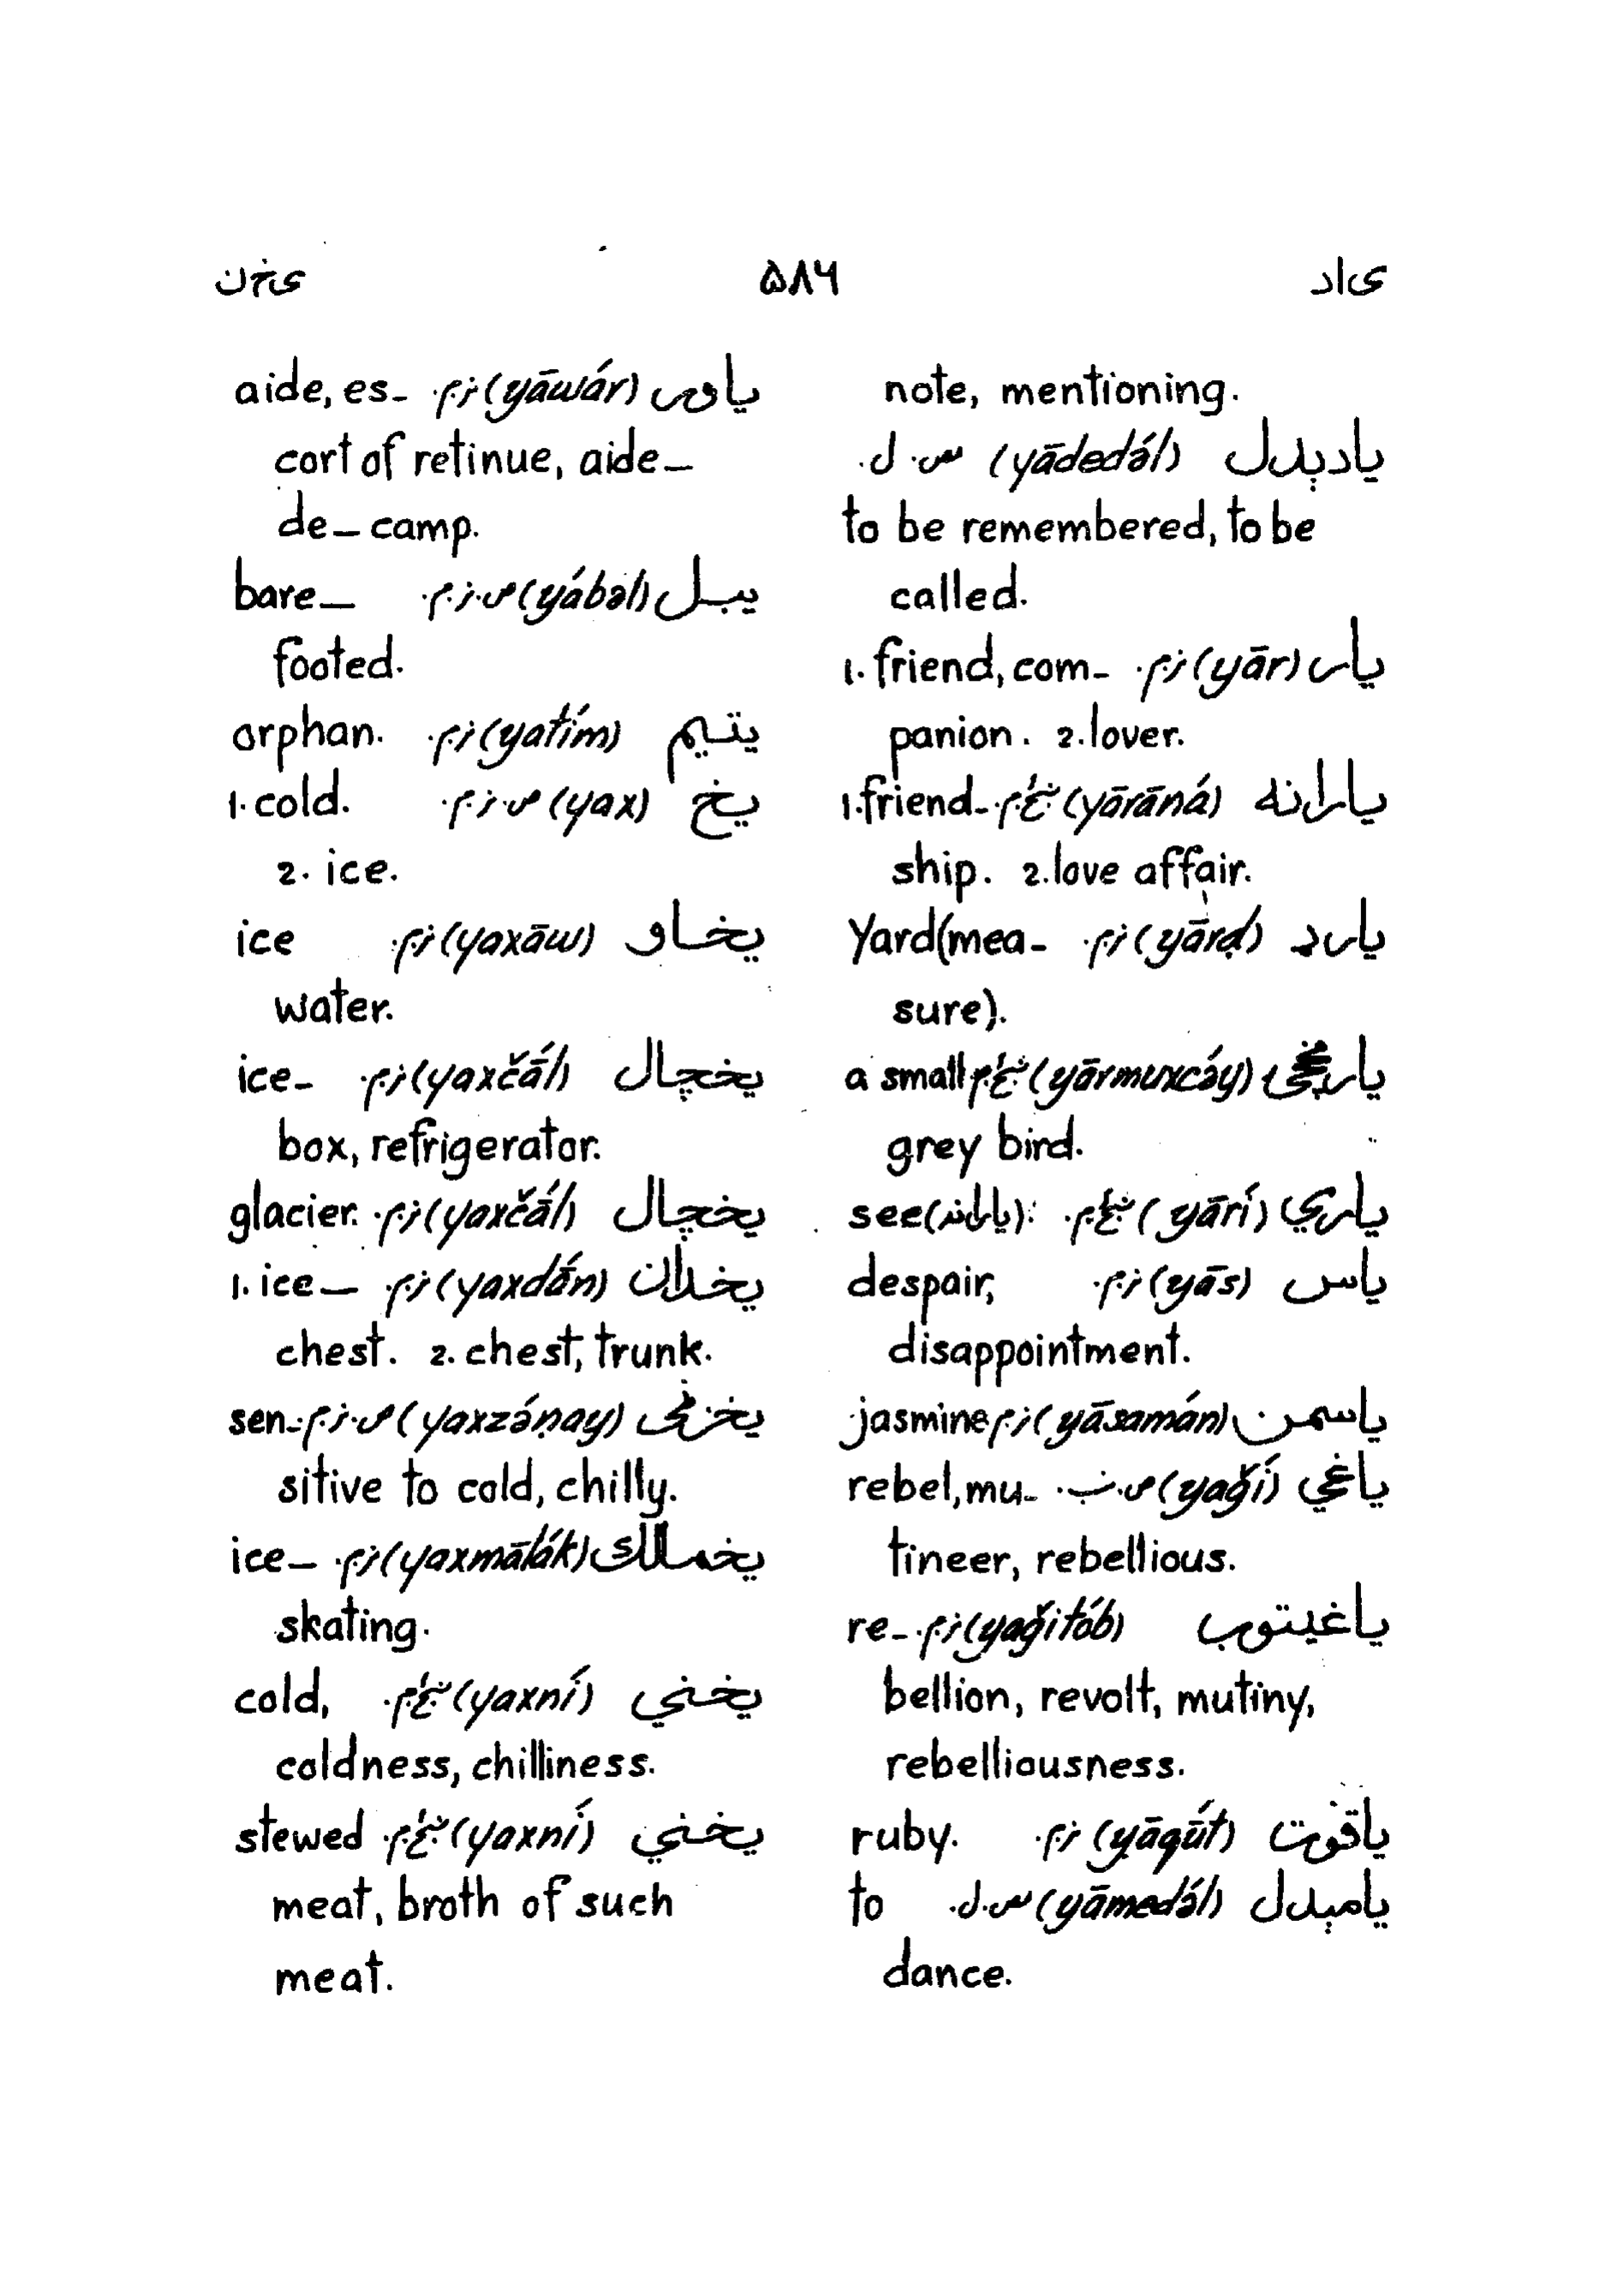 یاد ۵۸۶ یخن
note, mentioning.
یادېدل (yādedə́l) س. ل.
to be remembered, to be
called.
یار (yār) نر.م. 1. friend, com-
panion. 2. lover.
یارانه (yārāná) ښځ.م. 1. friend-
ship. 2. love affair.
یارډ (yārḍ) نر.م. Yard (mea-
sure).
(yārmuxcə́y) ښځ.م. a small
grey bird.
یاري (yārí) ښځ.م. see (یارانه):
یاس (yās) نر.م. despair,
disappointment.
یاسمن (yāsamán) نر.م. jasmine
یاغي (yağí) ص.ب. rebel, mu-
tineer, rebellious.
یاغیتوب (yağitób) نر.م. re-
bellion, revolt, mutiny,
rebelliousness.
یاقوت (yāqū́t) نر.م. ruby.
یامېدل (yāmedə́l) س.ل. to
dance.
یاور (yāwár) نر.م. aide, es-
cort of retinue, aide-
de-camp.
یبل (yábəl) ص.نر.م. bare-
footed.
یتیم (yatím) نر.م. orphan.
یخ (yax) ص.نر.م. 1. cold.
2. ice.
یخاو (yaxāw) نر.م. ice
water.
یخچال (yaxčā́l) نر.م. ice-
box, refrigerator.
یخچال (yaxčā́l) نر.م. glacier.
یخدان (yaxdā́n) نر.م. 1. ice-
chest. 2. chest, trunk.
یخزڼی (yaxzə́ṇay) ص.نر.م. sen-
sitive to cold, chilly.
یخمالک (yaxmālák) نر.م. ice-
skating.
یخني (yaxní) ښځ.م. cold,
coldness, chilliness.
یخني (yaxní) ښځ.م. stewed
meat, broth of such
meat.